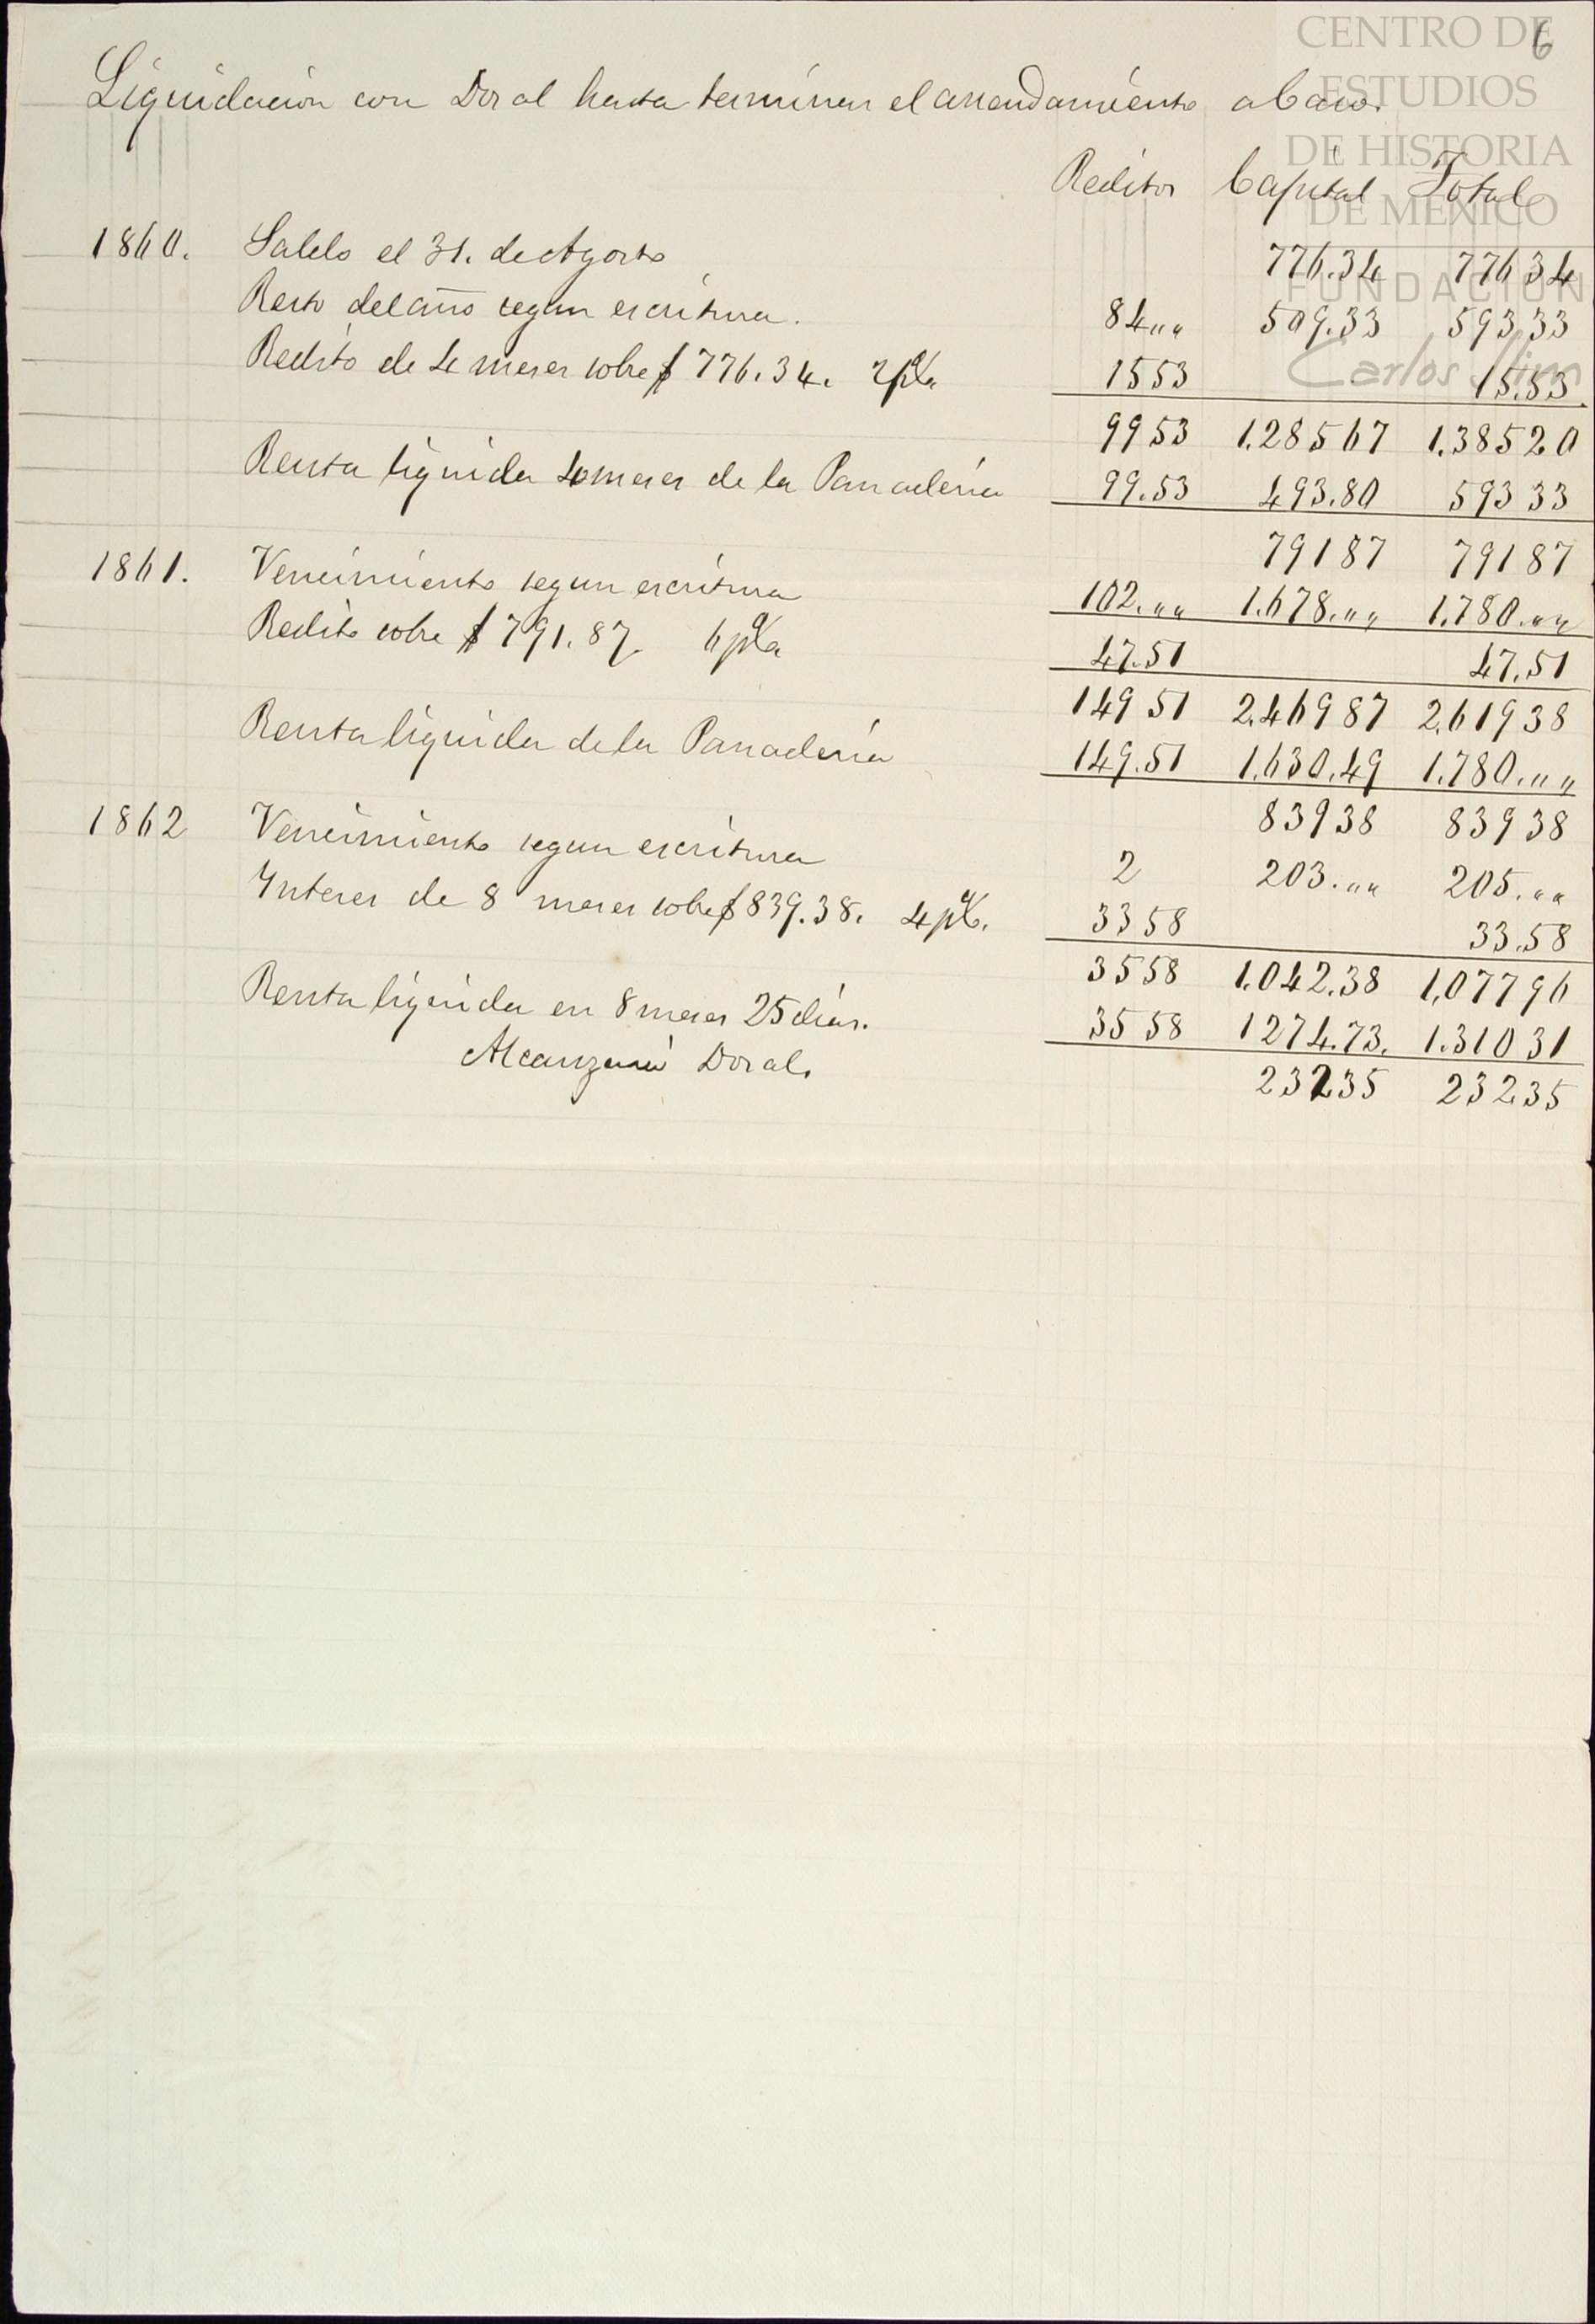 CENTRO DE
ESTUDIOS
DE HISTORIA
DE MEXICO
FUNDACION
Carlos Slim
6
Liquidacion con Doral hasta terminar el arrendamiento
Reditos Capital Total
1860. Saldo el 31. de Agosto 776.34 776 34
Resto del año segun escritura. 84,,, 509.33 593,33
Redito de 4 meses sobre $ 776.34. 2 p% 15 53 15.53.
99 53 1.285 67 1.385 20
Renta liquida 4 meses de la Panaderia 99.53 493.80 593 33
791 87 791 87
1861. Vencimiento segun escritura 102.,, 1.678.,, 1.780.,,
Redito sobre $ 791.87. 6 p% 47.51 47.51
149 51 2.469 87 2.619 38
Renta liquida de la Panaderia 149.51 1.630.49 1.780.,,
839 38 839 38
1862 Vencimiento segun escritura 2 203.,, 205.,,
Interes de 8 meses sobre $ 839.38. 4 p%. 33 58 33.58
35 58 1.042.38 1,077 96
Renta liquida en 8 meses 25 dias. 35 58 1274.73. 1.310 31
Alcanzará Doral. 232 35 232 35